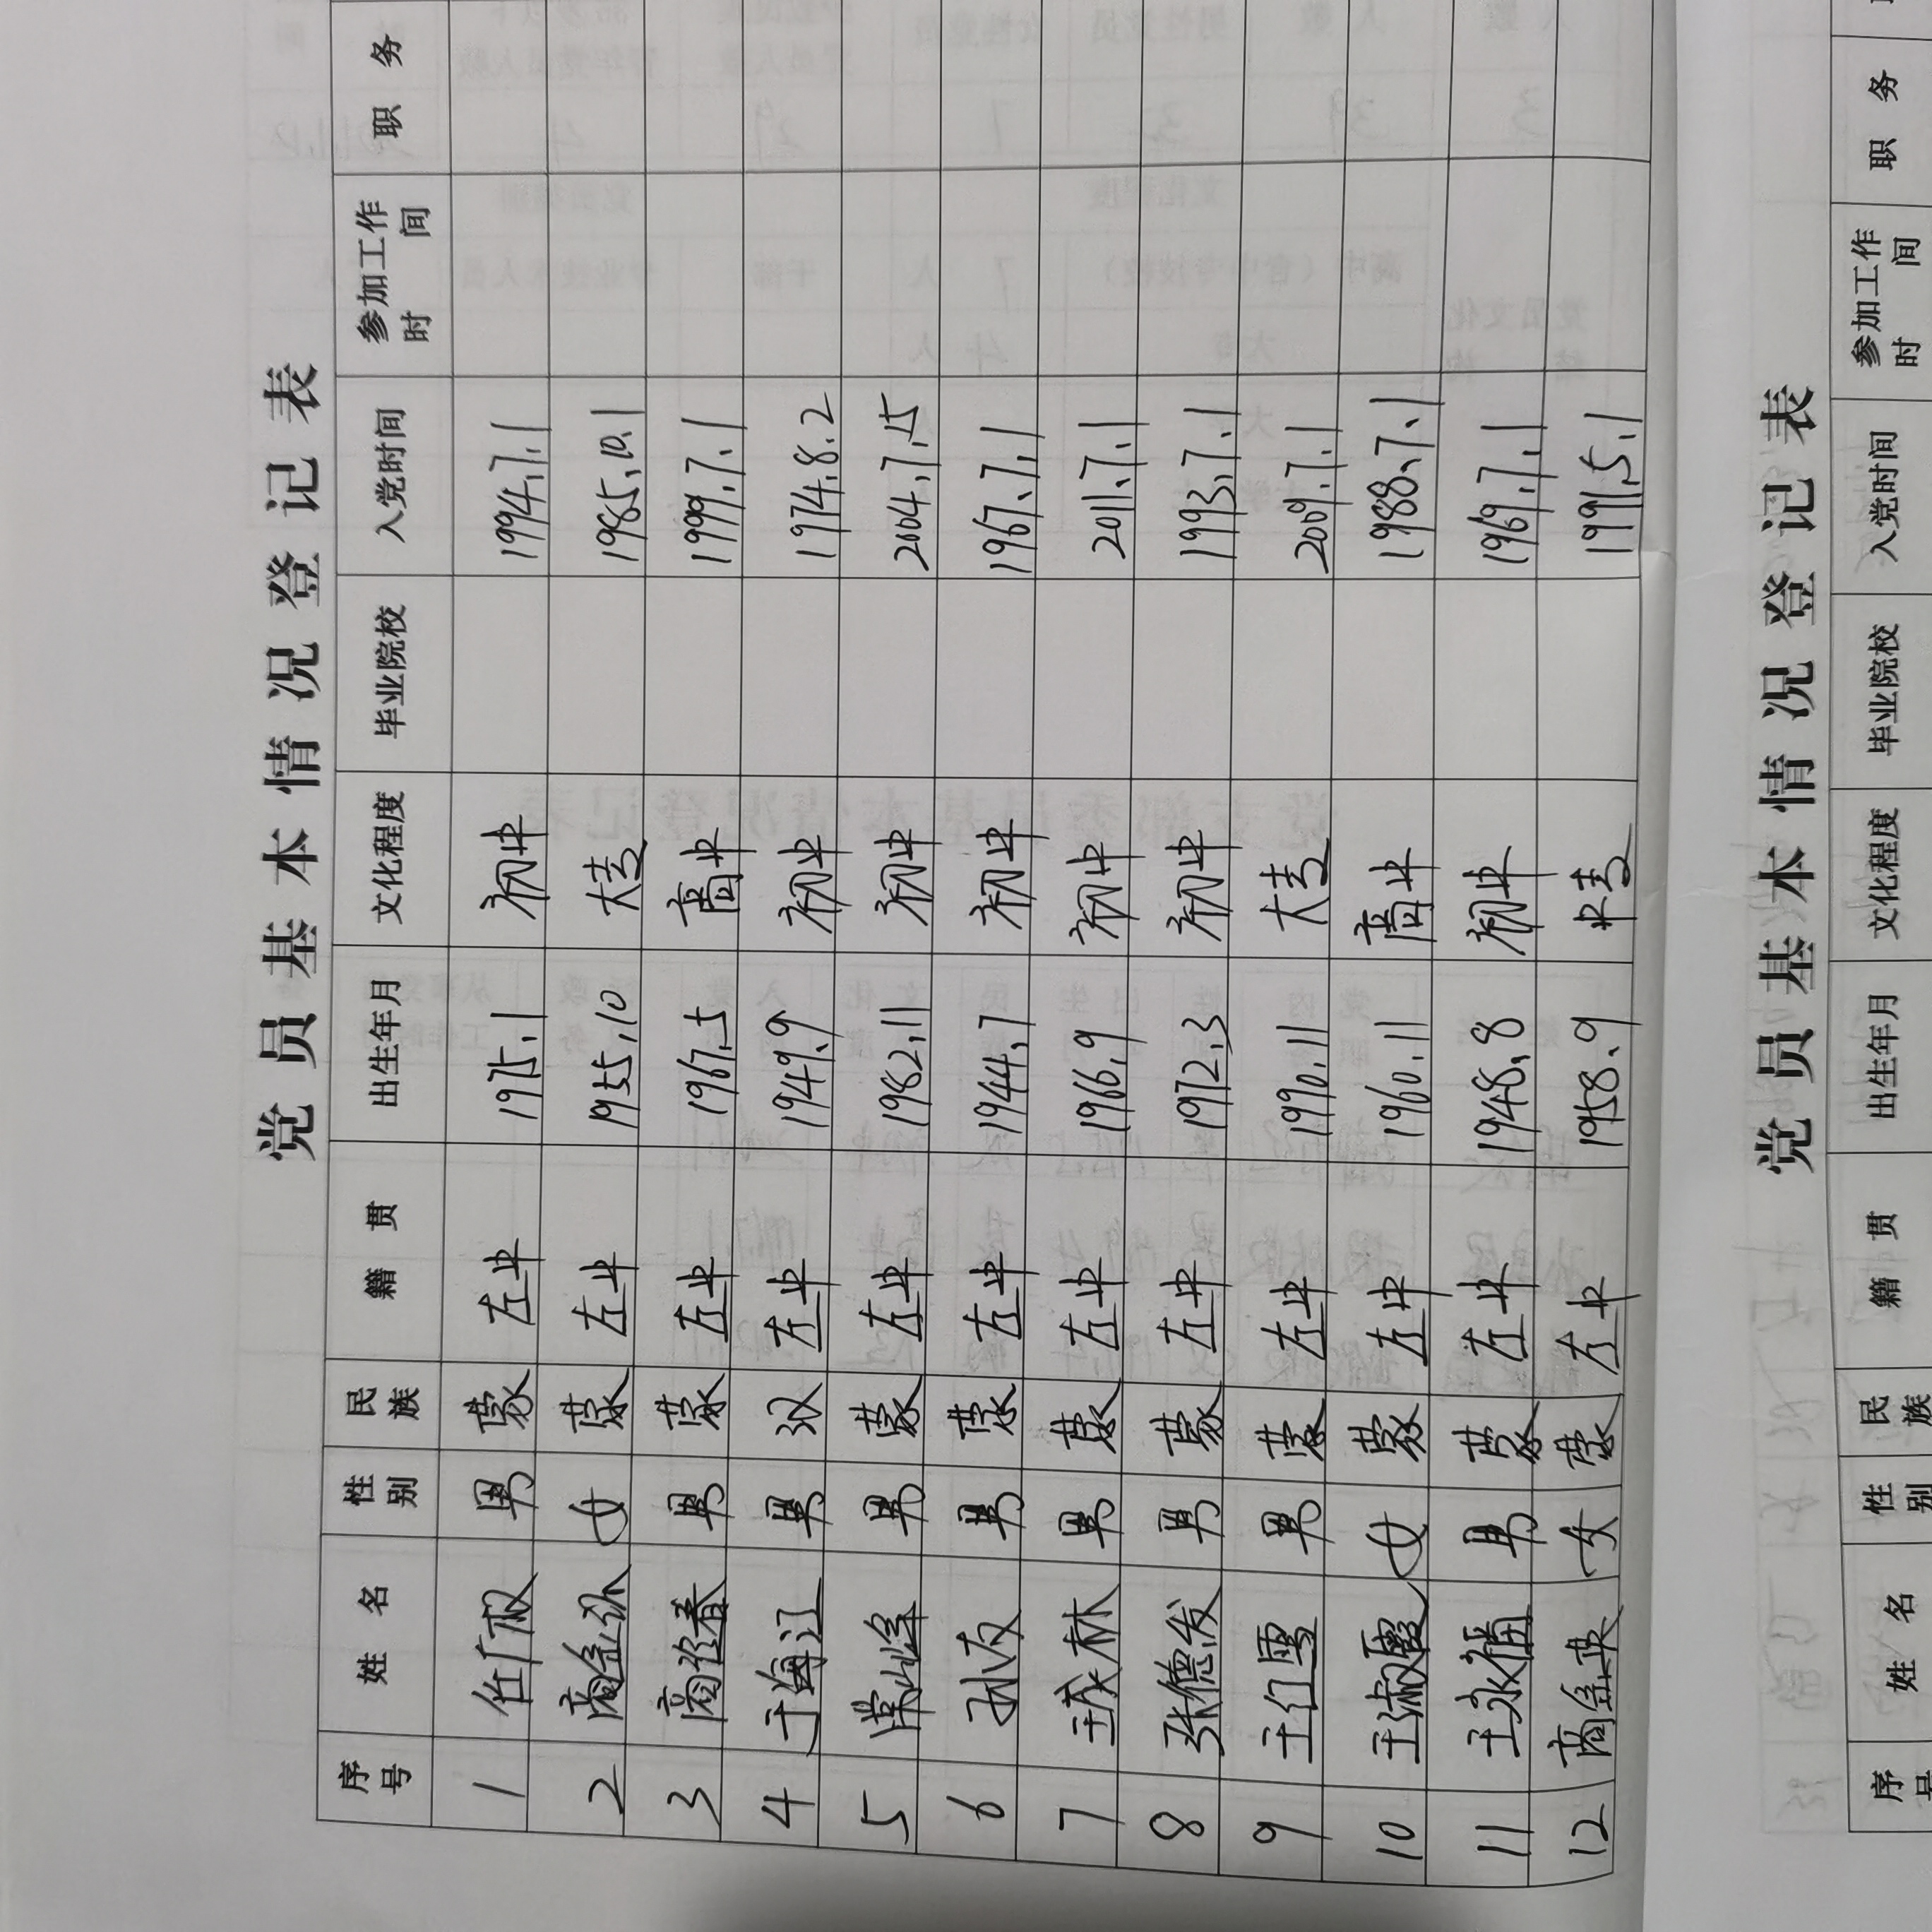 党员基本情况登记表
序号 姓名 性别 民族 籍贯 出生年月 文化程度 毕业院校 入党时间 参加工作时间 职务
1 男 蒙 左中 1975.1 初中 1994.7.1
2 女 蒙 左中 1955.10 大专 1985.10.1
3 商经春 男 蒙 左中 1967.5 高中 1999.7.1
4 于海江 男 汉 左中 1949.9 初中 1974.8.2
5 常峰 男 蒙 左中 1982.11 初中 2004.7.15
6 男 蒙 左中 1944.7 初中 1967.7.1
7 男 蒙 左中 1966.9 初中 2011.7.1
8 张德发 男 蒙 左中 1972.3 初中 1993.7.1
9 王红雪 男 蒙 左中 1990.11 大专 2009.7.1
10 王淑霞 女 蒙 左中 1960.11 高中 1988.7.1
11 男 蒙 左中 1948.8 初中 1969.7.1
12 商金英 女 蒙 左中 1958.9 中专 1991.5.1
党员基本情况登记表
序号 姓名 性别 民族 籍贯 出生年月 文化程度 毕业院校 入党时间 参加工作时间 职务